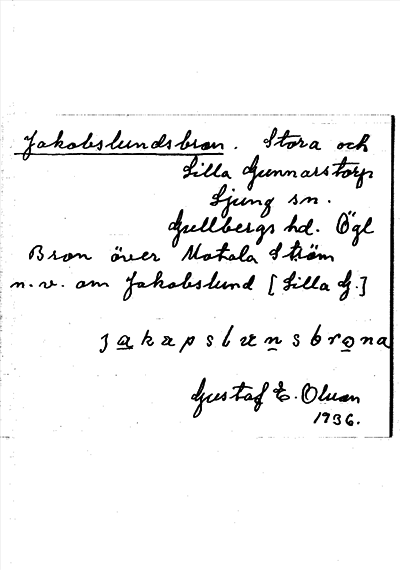 Jakobslundsbron. Stora och
Lilla Gunnarstorp
Ljung sn.
Gullbergs hd. Ögl
Bron över Motala Ström
n.v. om Jakobslund [Lilla G.]
jakapslunsbrona
Gustaf E. Olsson
1936.